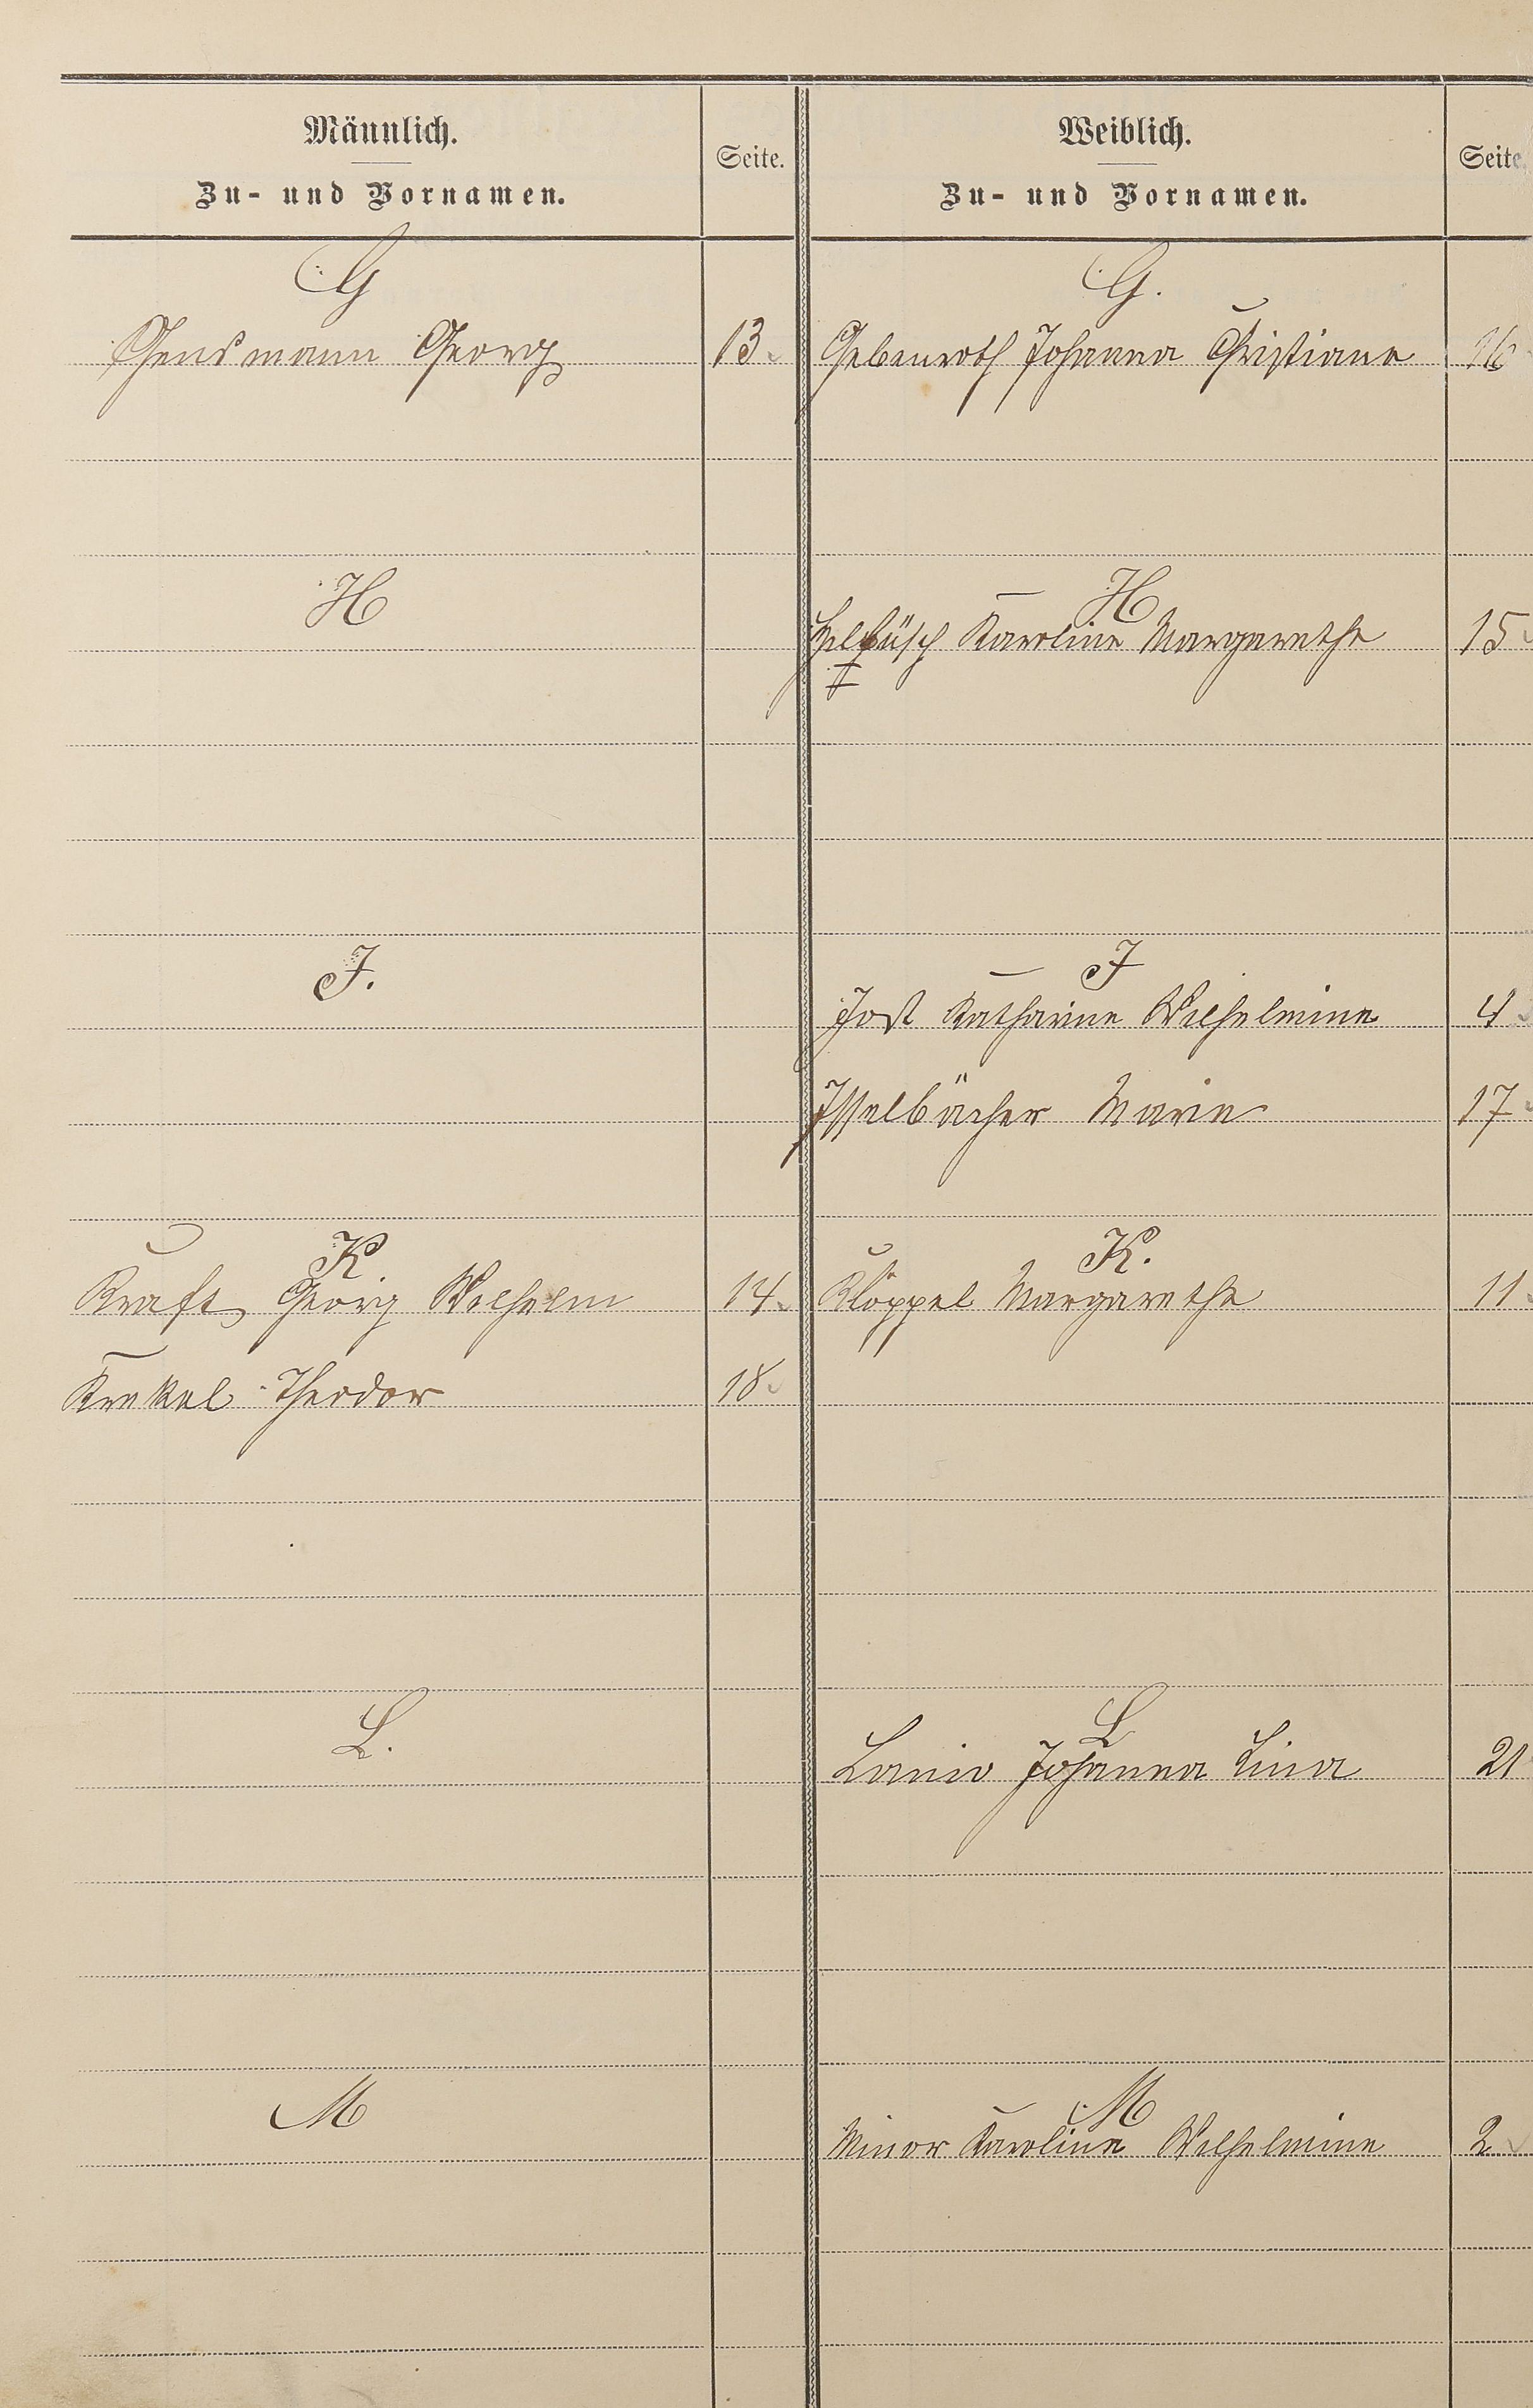 Männlich.
Zu- und Vornamen.
Seite.
Weiblich.
Zu- und Vornamen.
Seite.
G
G.
Gensmann Georg 13.
Gebenroth Johanna Christiane 16
H
H
Karoline Margarethe 15
J.
J
Jost Katharine Wilhelmine 4
Isselbächer Marie 17
K.
K.
Kraft, Georg Wilhelm 14.
Klöppel Margarethe 11
Krekel Theodor 18
L.
L
Johanna Lina 21
M
M
Minor Karoline Wilhelmine 2